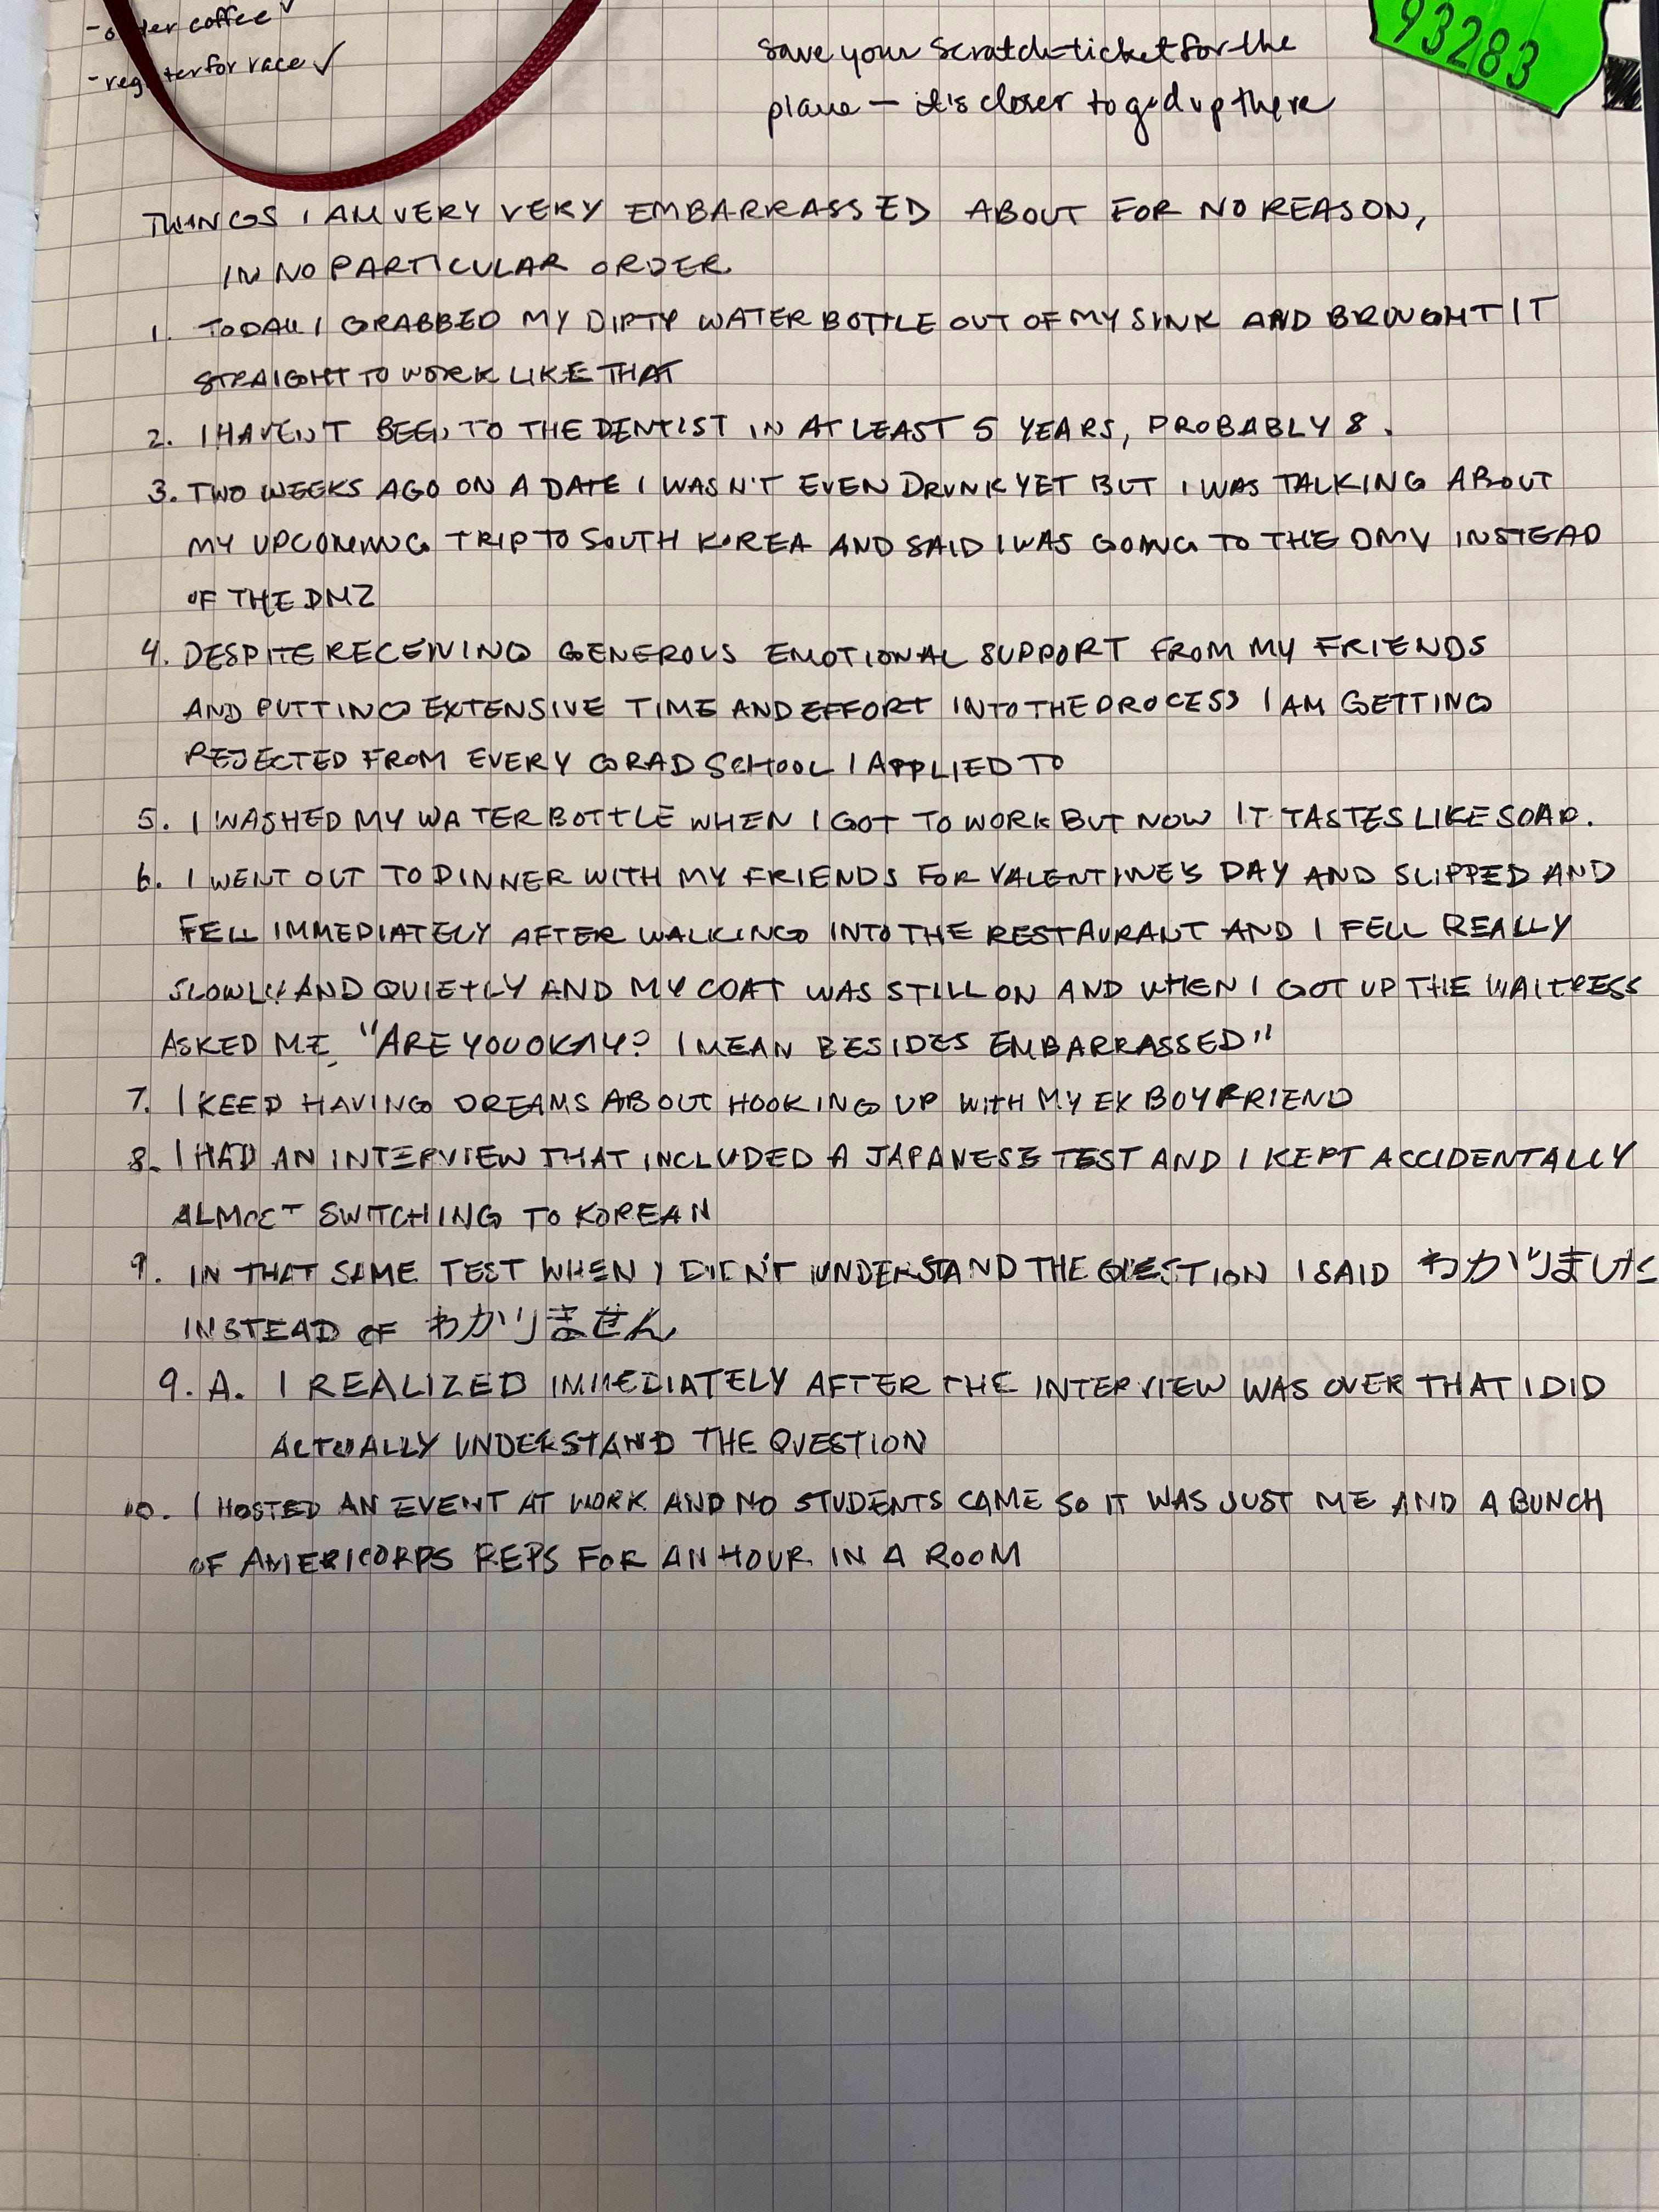 - order coffee ✓
- register for race ✓
save your scratch ticket for the
plane — it's closer to god up there
93283
THINGS I AM VERY VERY EMBARRASSED ABOUT FOR NO REASON,
IN NO PARTICULAR ORDER.
1. TODAY I GRABBED MY DIRTY WATER BOTTLE OUT OF MY SINK AND BROUGHT IT
STRAIGHT TO WORK LIKE THAT
2. I HAVEN'T BEEN TO THE DENTIST IN AT LEAST 5 YEARS, PROBABLY 8.
3. TWO WEEKS AGO ON A DATE I WASN'T EVEN DRUNK YET BUT I WAS TALKING ABOUT
MY UPCOMING TRIP TO SOUTH KOREA AND SAID I WAS GOING TO THE DMV INSTEAD
OF THE DMZ
4. DESPITE RECEIVING GENEROUS EMOTIONAL SUPPORT FROM MY FRIENDS
AND PUTTING EXTENSIVE TIME AND EFFORT INTO THE PROCESS I AM GETTING
REJECTED FROM EVERY GRAD SCHOOL I APPLIED TO
5. I WASHED MY WATER BOTTLE WHEN I GOT TO WORK BUT NOW IT TASTES LIKE SOAP.
6. I WENT OUT TO DINNER WITH MY FRIENDS FOR VALENTINE'S DAY AND SLIPPED AND
FELL IMMEDIATELY AFTER WALKING INTO THE RESTAURANT AND I FELL REALLY
SLOWLY AND QUIETLY AND MY COAT WAS STILL ON AND WHEN I GOT UP THE WAITRESS
ASKED ME "ARE YOU OKAY? I MEAN BESIDES EMBARRASSED"
7. I KEEP HAVING DREAMS ABOUT HOOKING UP WITH MY EX BOYFRIEND
8. I HAD AN INTERVIEW THAT INCLUDED A JAPANESE TEST AND I KEPT ACCIDENTALLY
ALMOST SWITCHING TO KOREAN
9. IN THAT SAME TEST WHEN I DIDN'T UNDERSTAND THE QUESTION I SAID わかりました
INSTEAD OF わかりません
9. A. I REALIZED IMMEDIATELY AFTER THE INTERVIEW WAS OVER THAT I DID
ACTUALLY UNDERSTAND THE QUESTION
10. I HOSTED AN EVENT AT WORK AND NO STUDENTS CAME SO IT WAS JUST ME AND A BUNCH
OF AMERICORPS REPS FOR AN HOUR IN A ROOM